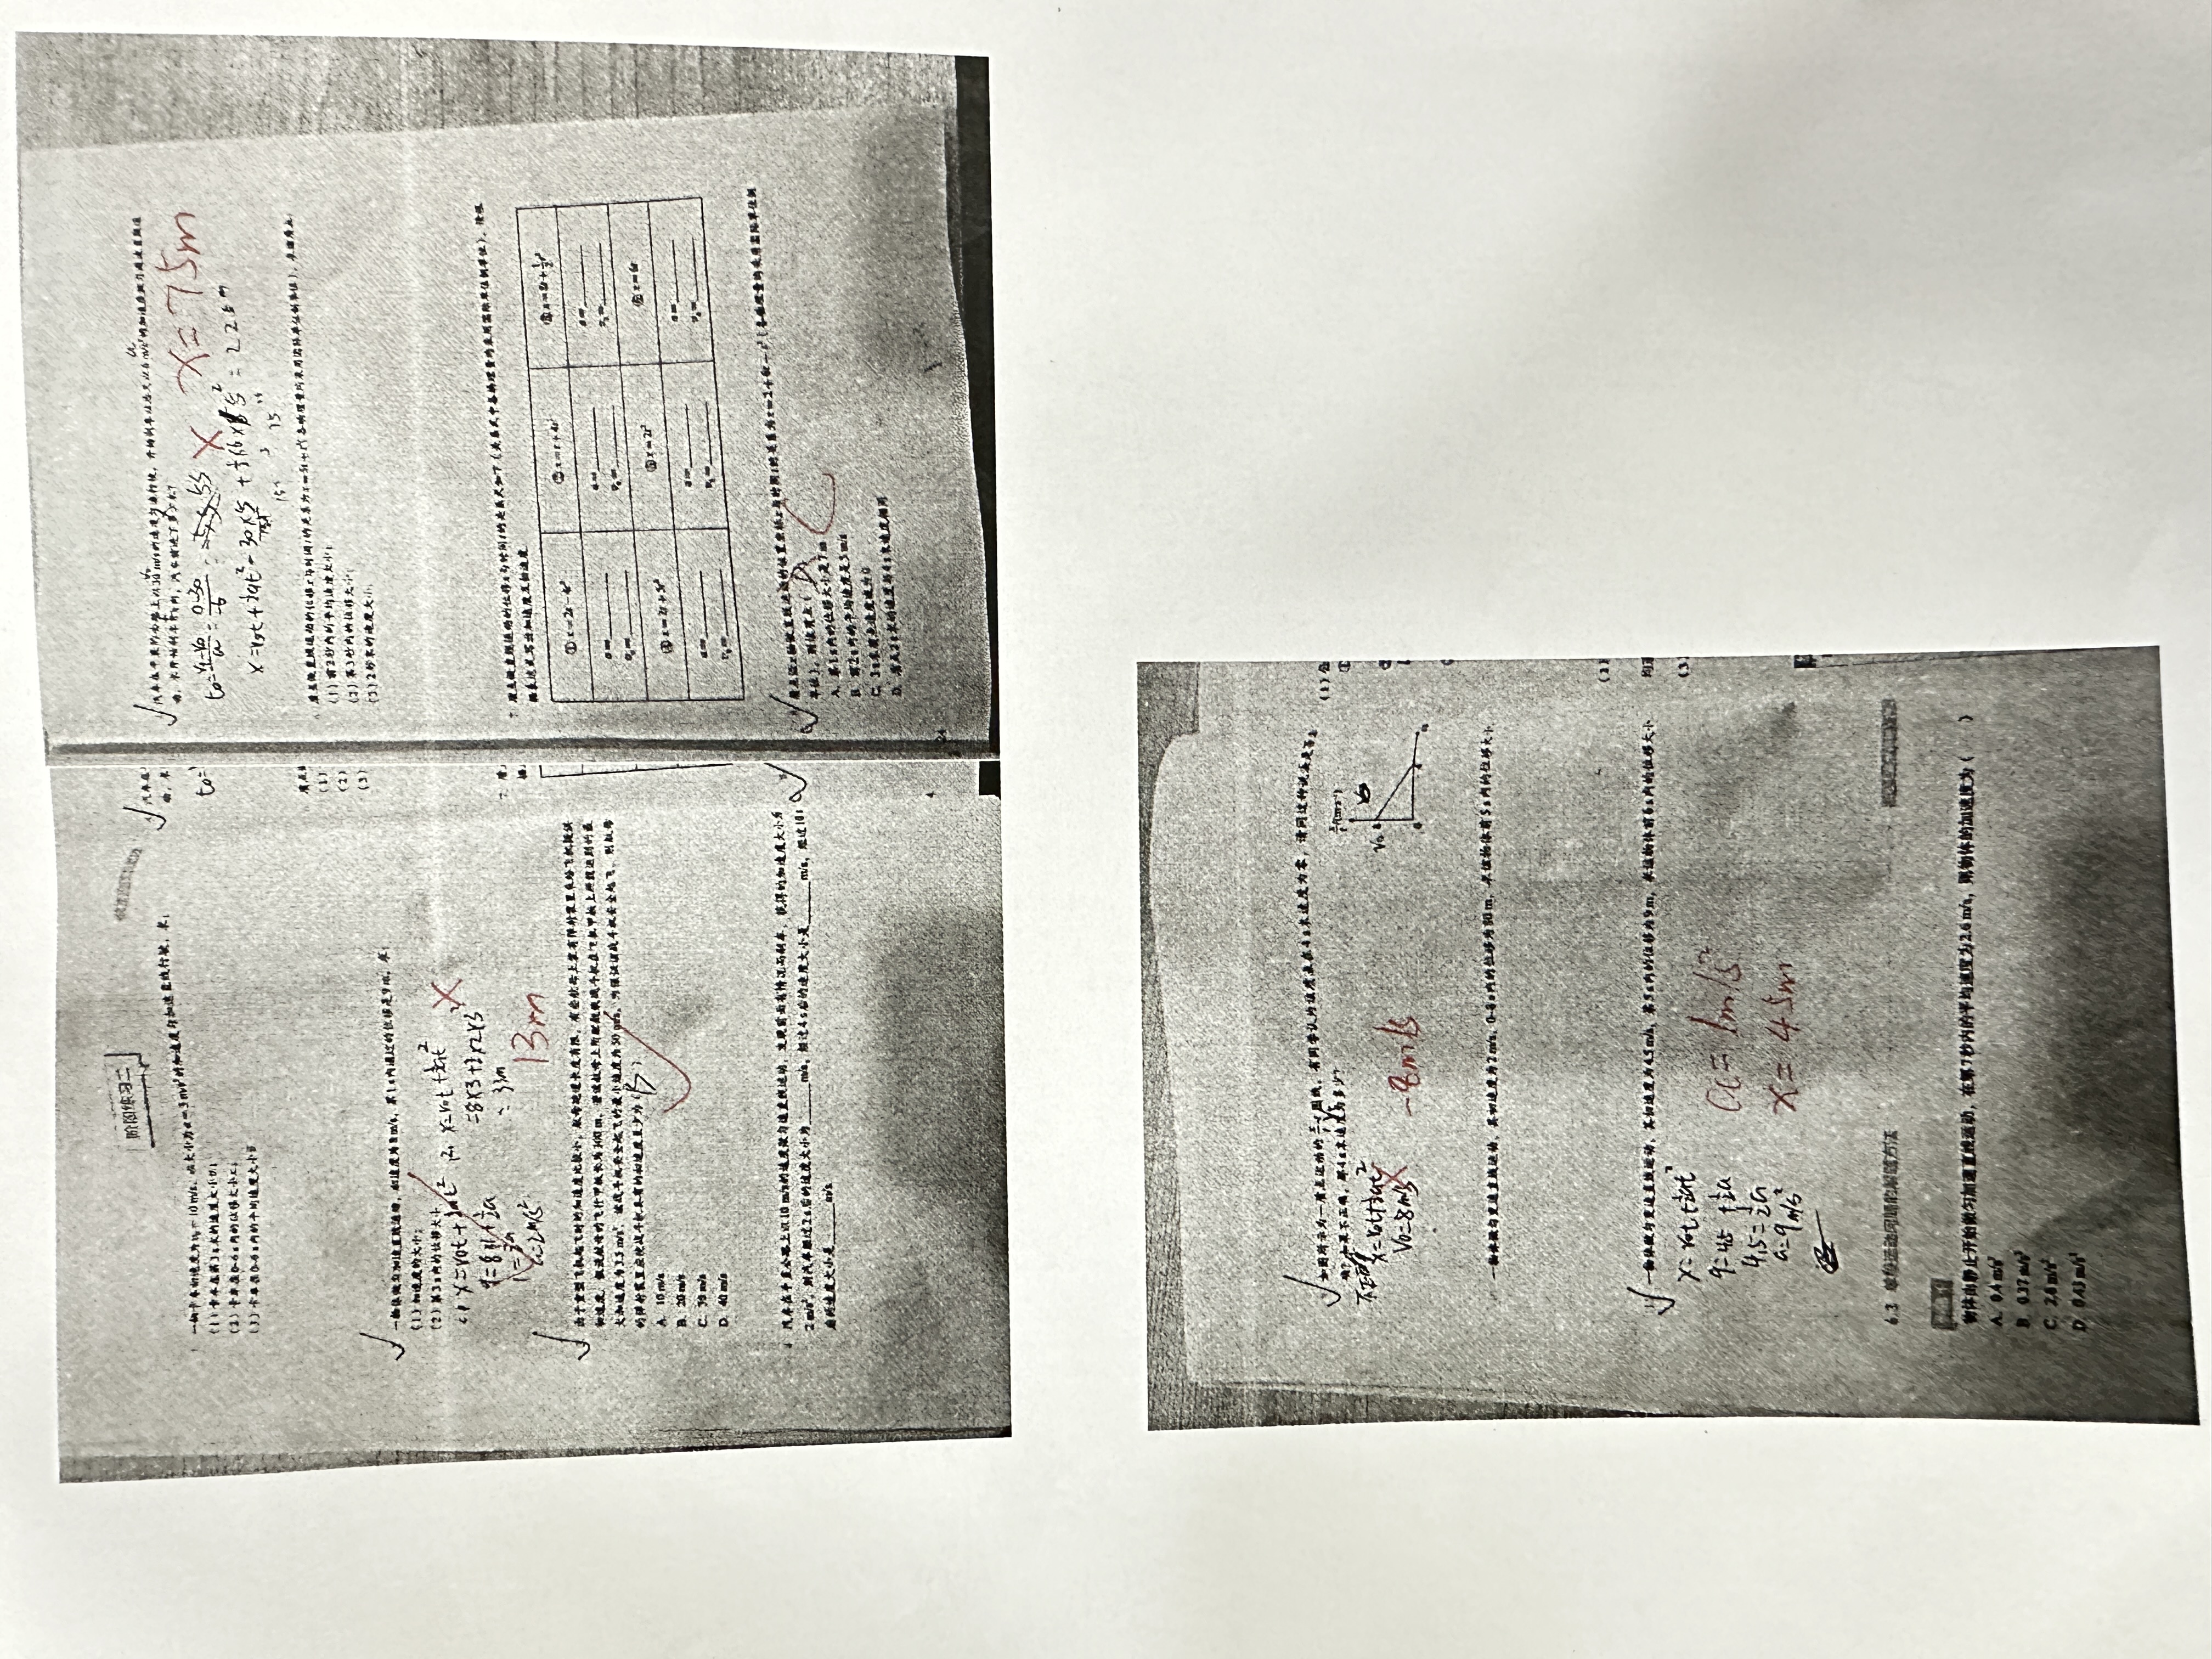 阶段练习二
一辆卡车初速度为v₀=10 m/s，以大小为a=3 m/s²的加速度匀加速直线行驶，求：
(1) 卡车在第3 s末的速度大小v；
(2) 卡车在0~6 s内的位移大小x；
(3) 卡车在0~6 s内的平均速度大小
一物体做匀加速直线运动，初速度为8 m/s，第1 s内通过的位移是9 m，求：
(1) 加速度的大小；
(2) 第3 s内的位移大小
(1) x=v₀t+½at²
9=8×1+½a
1=½a
a=2m/s²
(2) x=v₀t+½at²
=8×3+½×2×3²
=33m
13m
由于重型飞机起飞时的加速度比较小，航母跑道长度有限，有些航母上装有弹射装置来给飞机提供
初速度，假设航母的飞行甲板长为300 m，若该航母上所配舰载战斗机在飞机甲板上所能达到的最
大加速度为3.5 m/s²，该战斗机安全起飞的最小速度为50 m/s，为保证该战斗机安全起飞，则航母
的弹射装置应使战斗机具有的初速度至少为（B）
A. 10 m/s
B. 20 m/s
C. 30 m/s
D. 40 m/s
4 汽车在平直公路上以10 m/s的速度做匀速直线运动，发现前面有情况而刹车，获得的加速度大小为
2 m/s²，则汽车经过2 s后的速度大小为______m/s，经过4 s后的速度大小是______m/s，经过10 s
后的速度大小是______m/s
4
汽车在
动，求
t₀=
质点做
(1)
(2)
(3)
汽车在平直的公路上以30 m/s的速度匀速行驶，开始刹车以后又以6 m/s²的加速度做匀减速直线运
v₀
a
t₀=(vt-v₀)/a=(0-30)/-6=5s
x=v₀t+½at²=30×5+½×6×5²=225m
X=75m
质点做直线运动的位移x与时间t的关系为x=5t+t²（各物理量均采用国际单位制单位），求该质点：
(1) 前2秒内的平均速度大小；
(2) 第3秒内的位移大小；
(3) 2秒末的速度大小
7 质点做直线运动的位移x与时间t的关系式如下（关系式中各物理量均采用国际单位制单位），请根
据表达式写出加速度及初速度
① x=2t-4t²
② x=t+4t²
③ x=8t+½t²
a=______
v₀=______
a=______
v₀=______
a=______
v₀=______
④ x=2t+5t²
⑤ x=2t²
⑥ x=6t
a=______
v₀=______
a=______
v₀=______
a=______
v₀=______
质点沿x轴做直线运动的位置坐标x与时间t的关系为x=2+6t-t²（各物理量均采用国际单位制
单位），则该质点（D）
C
A. 第1 s内的位移大小是7 m
B. 前2 s内的平均速度是5 m/s
C. 3 s末质点速度减为0
D. 质点2 s末的速度与4 s末速度相同
24
如图所示为一质点运动的x/t-t图线，有同学认为该质点在4 s末速度为零，请问这种说法是否正
确？如果不正确，那4 s末速度为多少？
不正确
x=v₀t+½at²
V₀=8m/s
-8m/s
V₀
一物体做匀变速直线运动，其初速度为2 m/s，0~8 s内的位移为80 m，求该物体前5 s内的位移大小
一物体做匀变速直线运动，其初速度为4.5 m/s，第5 s内的位移为9 m，求该物体前6 s内的位移大小
x=v₀t+½at²
9=4.5+½a
4.5=½a
a=9m/s²
a=1m/s²
x=45m
(1)
①
(2)
(3)
6.3 单段运动问题的解题方法
物体由静止开始做匀加速直线运动，在第7秒内的平均速度为2.6 m/s，则物体的加速度为（ ）
A. 0.4 m/s²
B. 0.37 m/s²
C. 2.6 m/s²
D. 0.43 m/s²